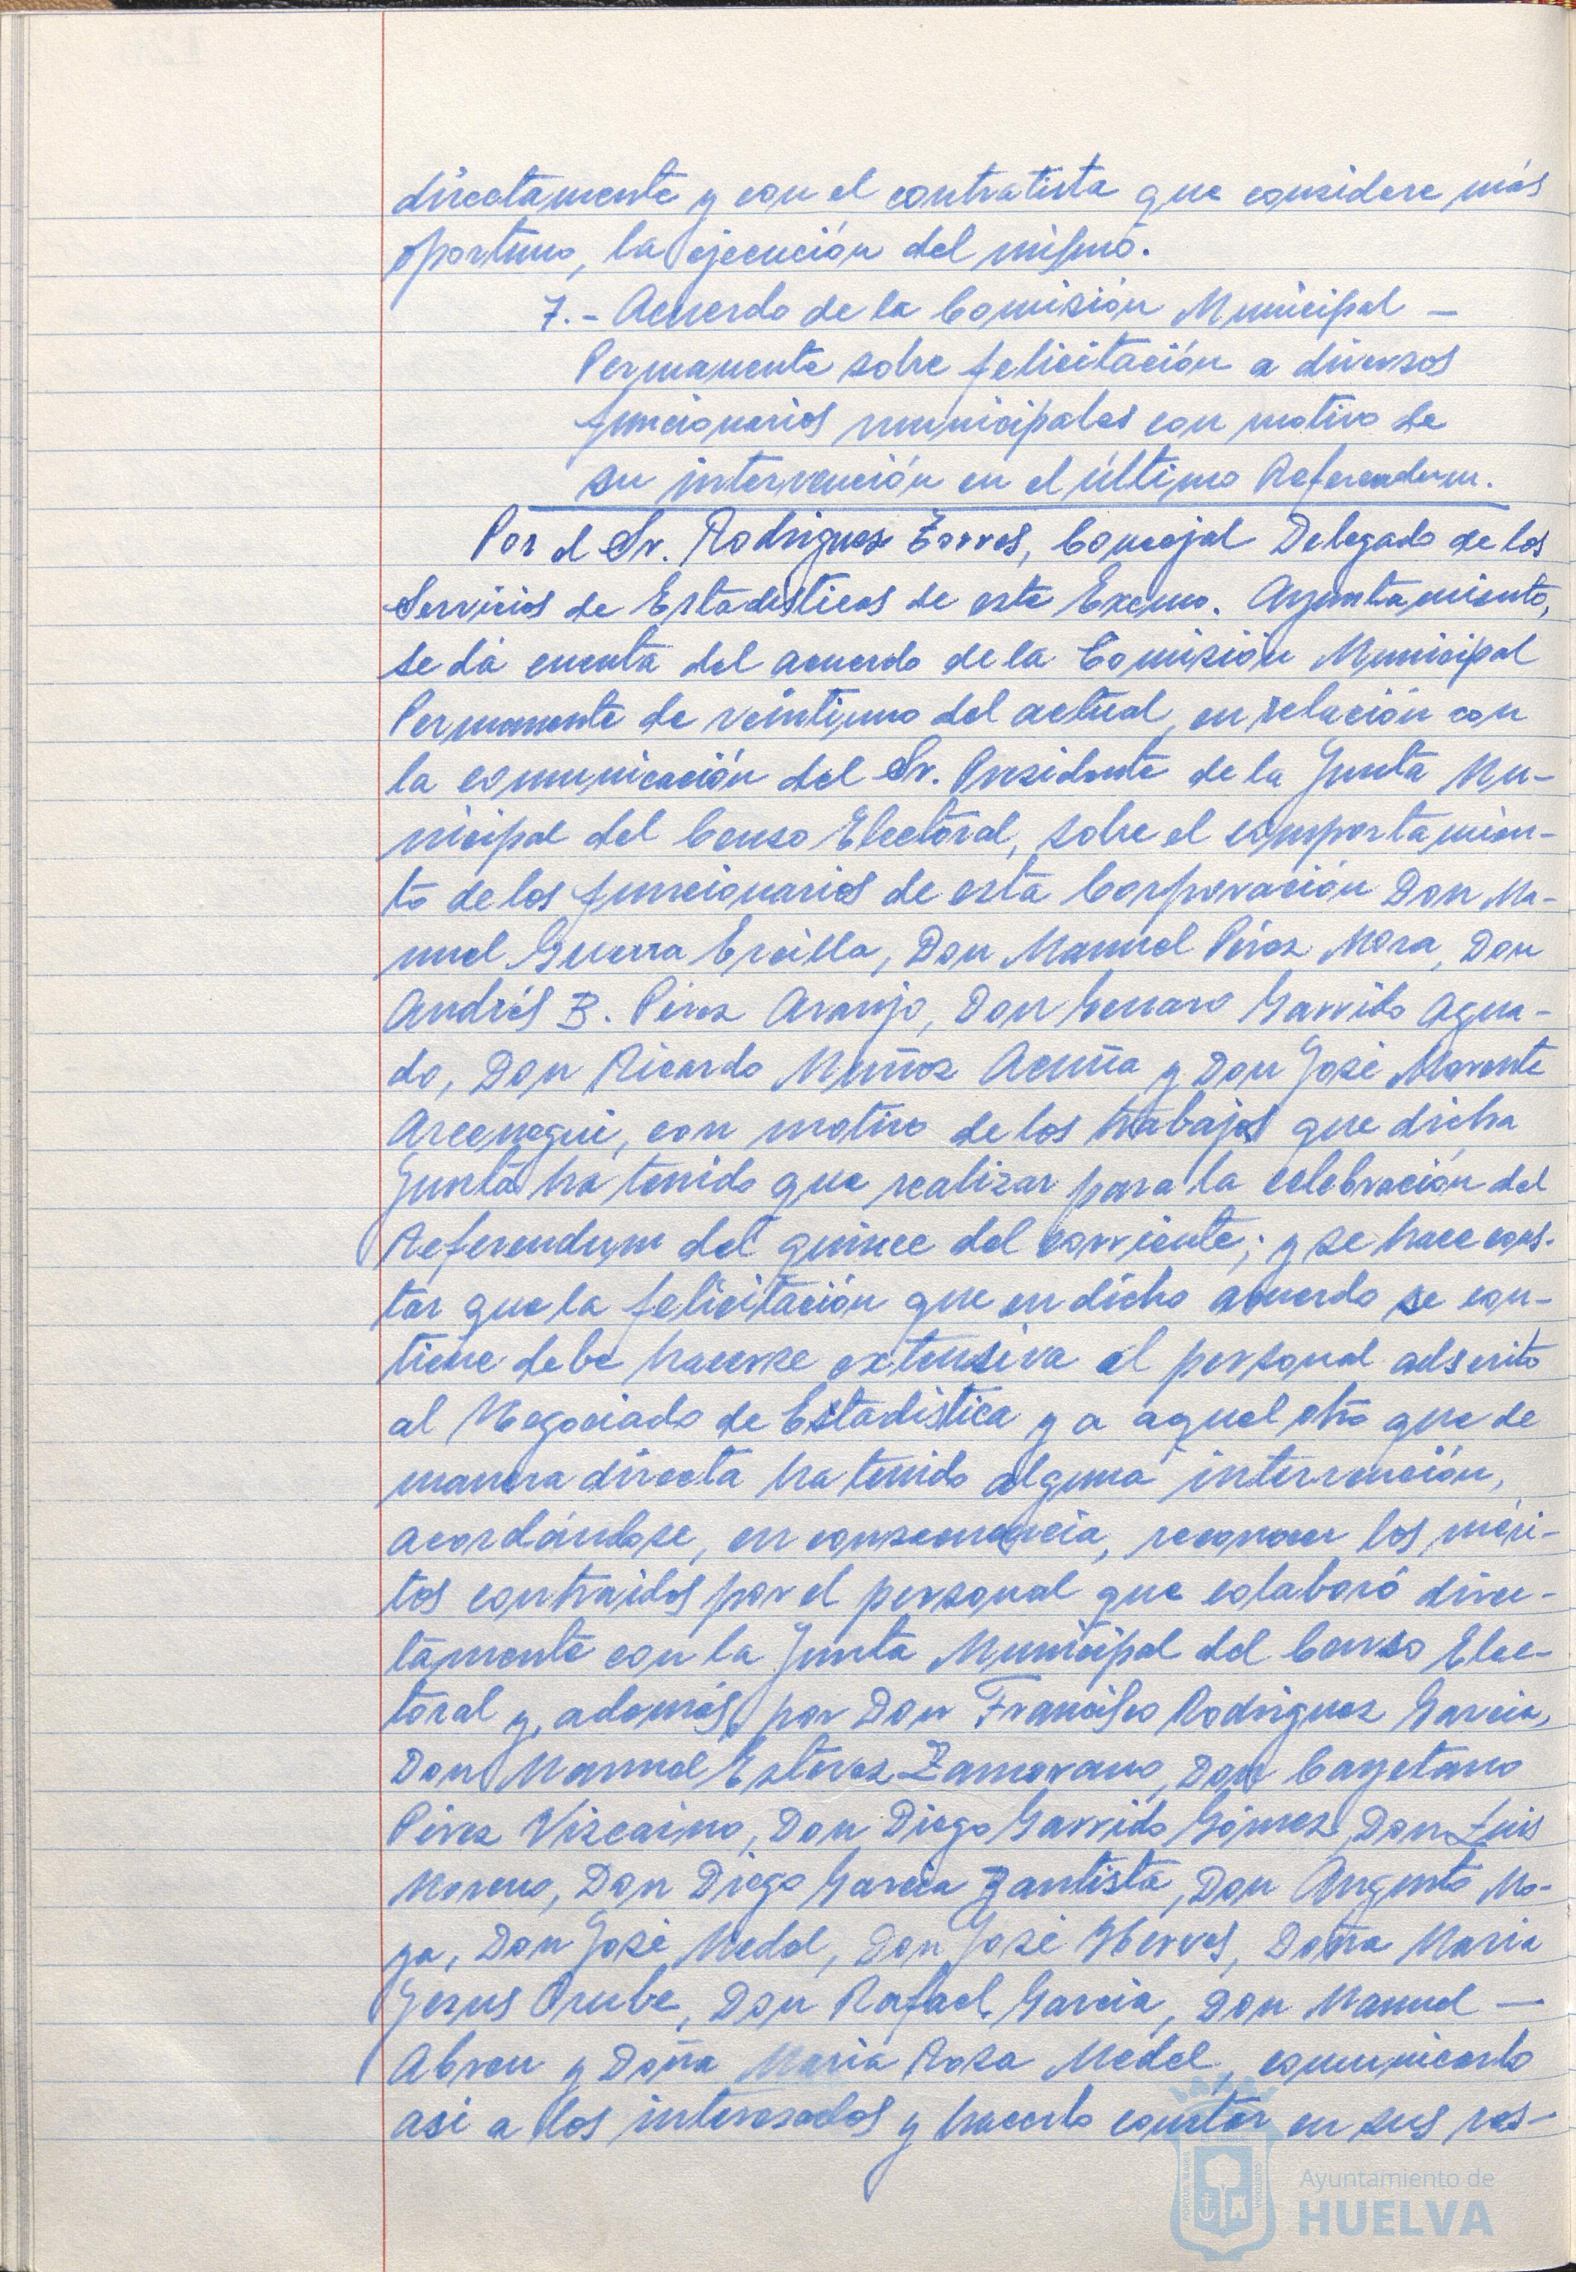 directamente y con el contratista que considere más
oportuno, la ejecución del mismo.
7.- Acuerdo de la Comisión Municipal -
Permanente sobre felicitación a diversos
funcionarios municipales con motivo de
su intervención en el último Referendum.
Por el Sr. Rodriguez Torres, Concejal Delegado de los
Servicios de Estadisticas de este Excmo. Ayuntamiento,
se dá cuenta del acuerdo de la Comisión Municipal
Permanente de veintiuno del actual, en relación con
la comunicación del Sr. Presidente de la Junta Mu-
nicipal del Censo Electoral, sobre el comportamien-
to de los funcionarios de esta Corporación Don Ma-
nuel Guerra Ercilla, Don Manuel Pérez Mora, Don
Andrés B. Pérez Araujo, Don Genaro Garrido Agua-
do, Don Ricardo Muñoz Acuña y Don José Morente
Arcenegui, con motivo de los trabajos que dicha
Junta ha tenido que realizar para la celebración del
Referendum del quince del corriente; y se hace cons-
tar que la felicitación que en dicho acuerdo se con-
tiene debe hacerse extensiva al personal adscrito
al Negociado de Estadistica y a aquel otro que de
manera directa ha tenido alguna intervención,
acordándose, en consecuencia, reconocer los méri-
tos contraidos por el personal que colaboró direc-
tamente con la Junta Municipal del Censo Elec-
toral y, además, por Don Francisco Rodriguez Garcia,
Don Manuel Estevez Zamorano, Don Cayetano
Pérez Vizcaino, Don Diego Garrido Gómez, Don Luis
Moreno, Don Diego Garcia Bautista, Don Augusto Mo-
ya, Don José Medel, Don José Hervas, Doña Maria
Jesus Orube, Don Rafael Garcia, Don Manuel -
Abreu y Doña Maria Rosa Medel, comunicarlo
asi a los interesados y hacerlo constar en sus res-
Ayuntamiento de
HUELVA